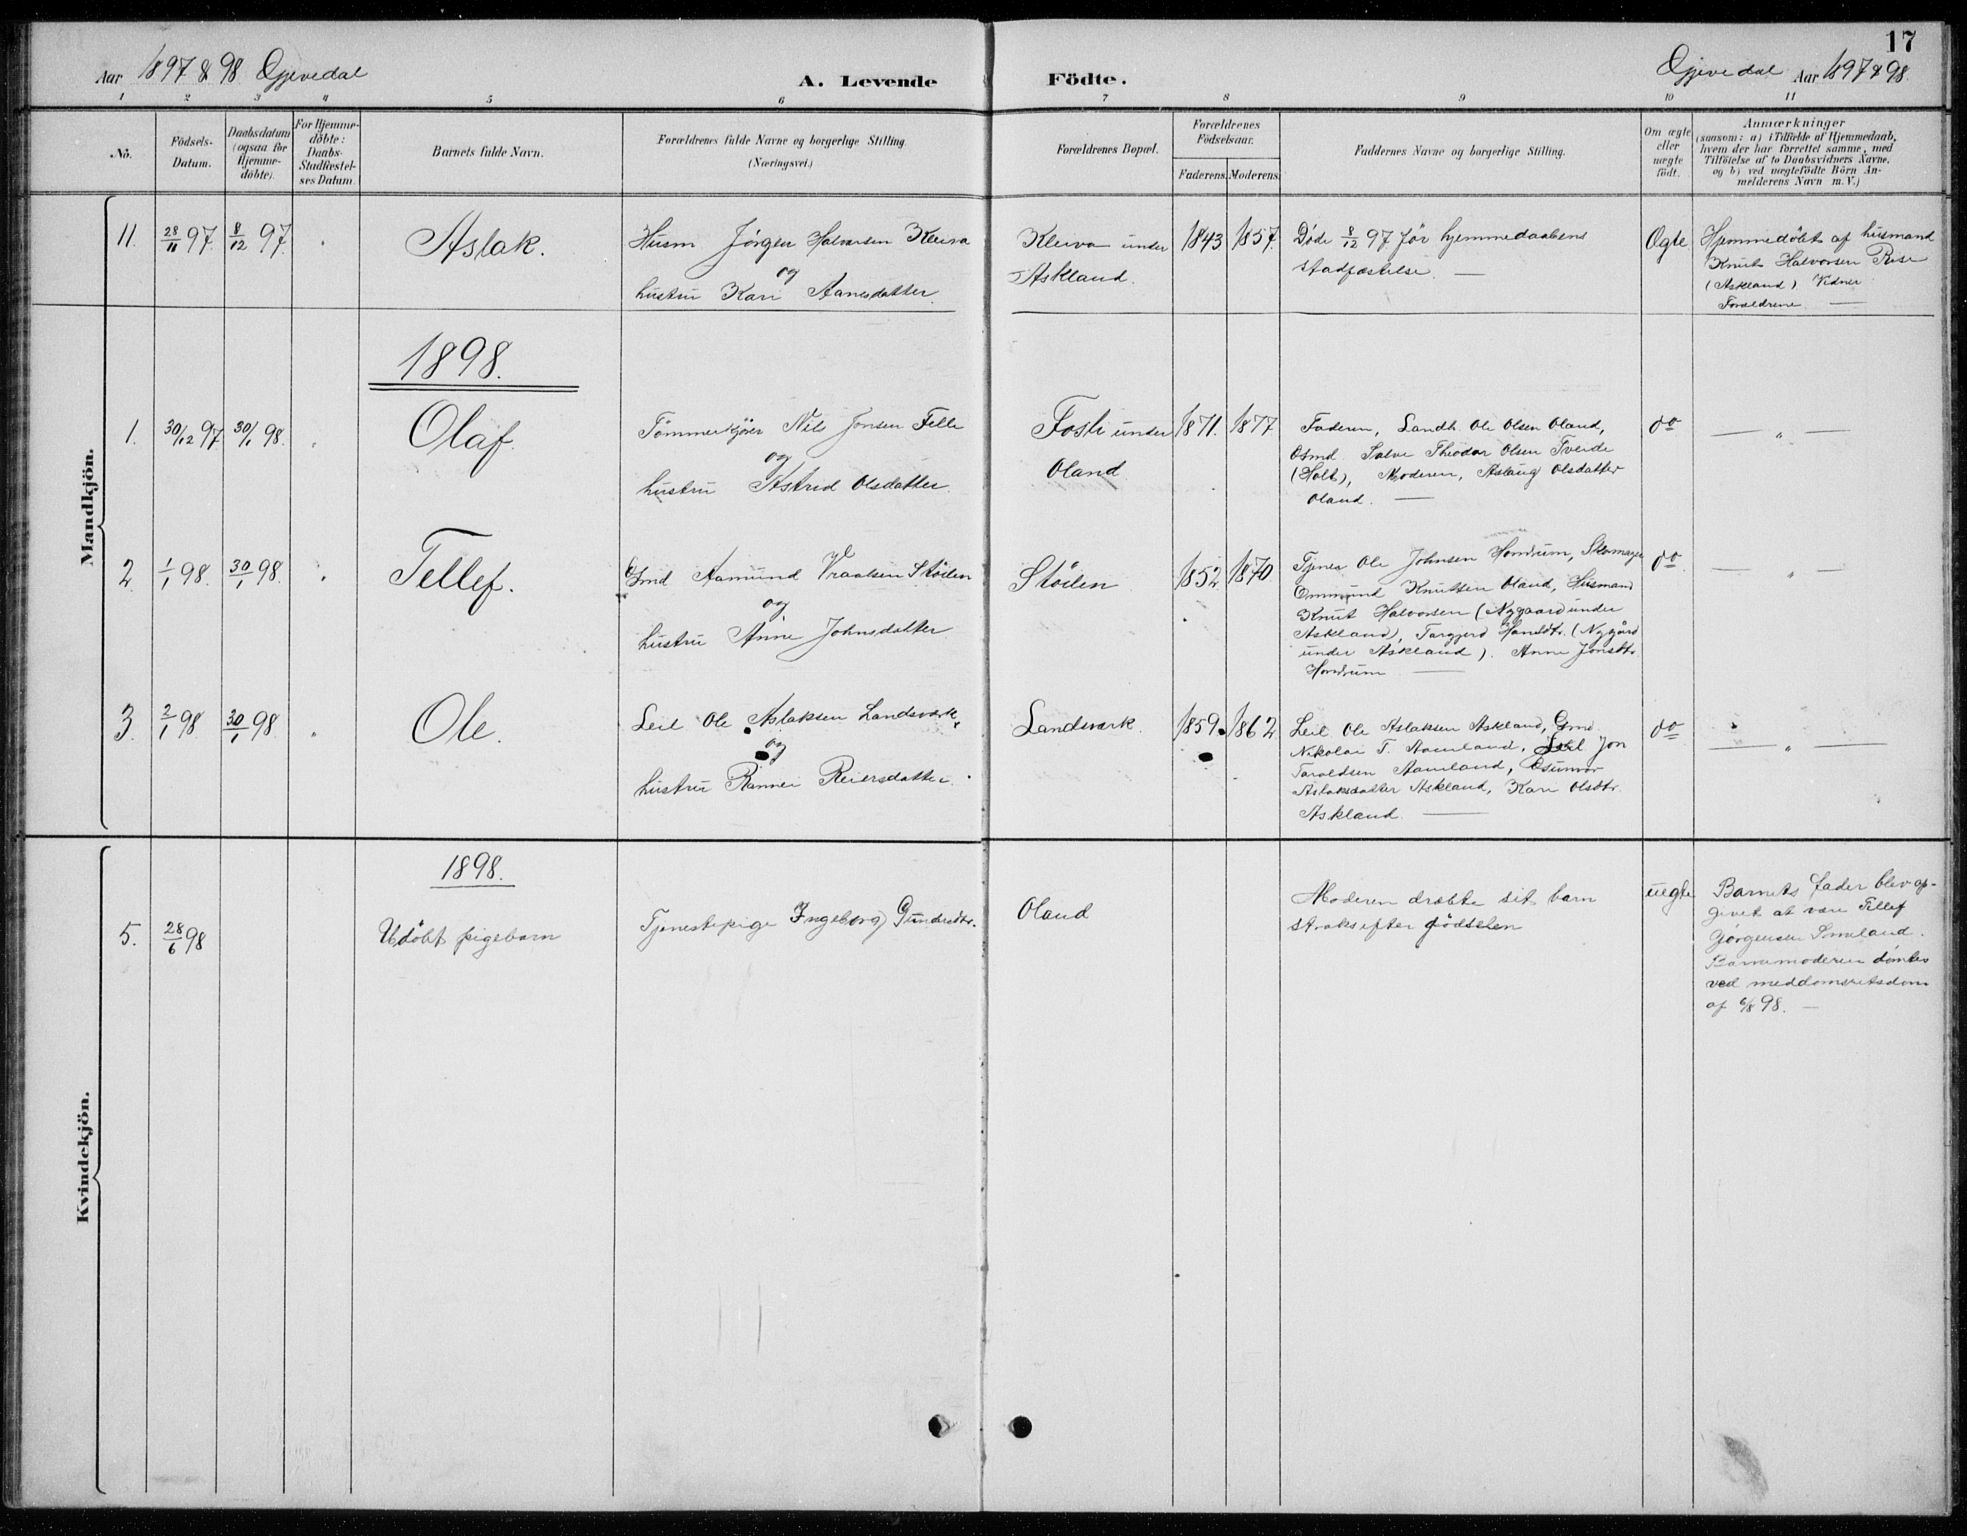 17
Aar 1897 & 98 Gjevedal
A. Levende
Födte.
Gjevedal Aar 1897 & 98.
1 2 3 4 5 6 7 8 9 10 11
No.
Födsels-
Datum.
Daabsdatum
(ogsaa for
Hjemme-
döbte).
For Hjemme-
döbte:
Daabs-
Stadfæstel-
ses Datum.
Barnets fulde Navn.
Forældrenes fulde Navne og borgerlige Stilling.
(Næringsvei.)
Forældrenes Bopæl.
Forældrenes
Födselsaar.
Faderens. Moderens.
Faddernes Navne og borgerlige Stilling.
Om ægte
eller
uægte
födt.
Anmærkninger
(saasom: a) i Tilfælde af Hjemmedaab,
hvem der har forrettet samme, med
Tilföielse af to Daabsvidners Navne,
og b) ved uægtefödte Börn An-
melderens Navn m. V.)
Mandkjön.
11. 28/11 97 8/12 97. Aslak.
Husm Jørgen Halvorsen Kleiva
og
hustru Kari Aanesdatter.
Kleiva under
Askland.
1843 1857.
Døde 8/12 97 før hjemmedaabens
stadfæstelse. —
Ægte
Hjemmedøbt af husmand
Knut Halvorsen Rise
(Askland) Vidner
Forældrene —
1898.
1. 30/12 97 30/1 98. Olaf.
Tømmerkjører Nils Jonsen Felle
og
hustru Astrid Olsdatter.
Fosli under
Oland.
1871. 1877
Faderen, Landh. Ole Olsen Oland,
Gsmd. Salve Theodor Olsen Tveide
(Holt), Moderen, Aslaug Olsdatter
Oland. —
do
— " —
2. 1/1 98. 30/1 98. Tellef.
Gmd Aamund Vraalsen Støilen
og
hustru Anne Johnsdatter
Støilen
1852. 1870
Tjener Ole Johnsen Hovdrum, Skomager
Ommund Knutsen Oland, Husmand
Knut Halvorsen (Nygaard under
Askland), Targjerd (Nygård
under Askland). Anne Jonsdtr.
Hovdrum —
do
— " —
3. 2/1 98 30/1 98 " Ole.
Leil Ole Aslaksen Landsverk,
og
hustru Rannei Reiersdatter.
Landsverk.
1859. 1862
Leil. Ole Aslaksen Askland, Gmd.
Nikolai T. Aamland, Leil Jon
Taraldsen Aamland, Gunvor
Aslaksdatter Askland, Kari Olsdtr.
Askland. —
do
— " —
Kvindekjön.
1898.
5. 28/6 98 Udøbt pigebarn
Tjenestepige Ingeborg Gundersdtr.
Oland
Moderen dræbte sit barn
straks efter fødselen
uegte
Barnets fader blev op-
givet at være Tellef
Jørgensen Smeland.
Barnemoderen dømtes
ved meddomsretsdom
af 6/8 98. —